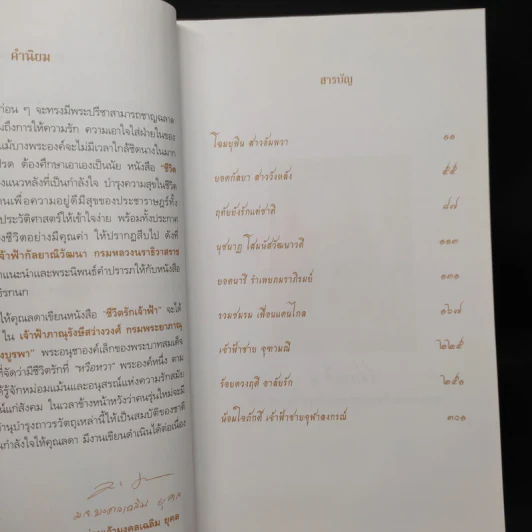 คำนิยม
ก่อน ๆ จะทรงมีพระปรีชาสามารถชาญฉลาด
มถึงการให้ความรัก ความเอาใจใส่ฝ่ายในของ
แม้บางพระองค์จะไม่มีเวลาใกล้ชิดนางในมาก
ปรด ต้องศึกษาเอาเองเป็นนัย หนังสือ "ชีวิต
งแนวหลังที่เป็นกำลังใจ บำรุงความสุขในชีวิต
านเพื่อความอยู่ดีมีสุขของประชาราษฎร์ทั้ง
ประวัติศาสตร์ให้เข้าใจง่าย พร้อมทั้งประกาศ
งชีวิตอย่างมีคุณค่า ให้ปรากฏสืบไป ดังที่
เจ้าฟ้ากัลยาณิวัฒนา กรมหลวงนราธิวาสราช
าแนะนำและพระนิพนธ์คำปรารภให้กับหนังสือ
ธิรกนก
ให้คุณลดาเขียนหนังสือ "ชีวิตรักเจ้าฟ้า" จะได้
ใน เจ้าฟ้าภาณุรังษีสว่างวงศ์ กรมพระยาภาณุ
งบูรพา" พระอนุชาองค์เล็กของพระบาทสมเด็จ
ที่จัดว่ามีชีวิตรักที่ "หวือหวา" พระองค์หนึ่ง ตาม
ด้รู้จักหม่อมแม้นและอนุสรณ์แห่งความรักสมัย
น์แก่สังคม ในเวลาข้างหน้าหวังว่าคนรุ่นใหม่จะมี
ทำนุบำรุงถาวรวัตถุเหล่านี้ให้เป็นสมบัติของชาติ
นกำลังใจให้คุณลดา มีงานเขียนดำเนินได้ต่อเนื่อง
ม.จ. มงคลเฉลิม ยุคล
เจ้ามงคลเฉลิม ยุคล
สารบัญ
โฉมยุพิน สาวอัมพวา ๑๑
ยอดกัลยา สาววังหลัง ๕๕
ฤทัยยังรักแต่ชาติ ๘๗
นุชนาฏ โสมนัสวัฒนาวดี ๑๑๓
ยอดนารี รำเพยภมราภิรมย์ ๑๓๑
รวมชมรม เพื่อนแดนไกล ๑๖๗
เจ้าฟ้าชาย จุฑามณี ๒๒๕
ร้อยดวงฤดี อาลัยรัก ๒๕๑
น้อมใจภักดี เจ้าฟ้าชายจุฬาลงกรณ์ ๓๐๑